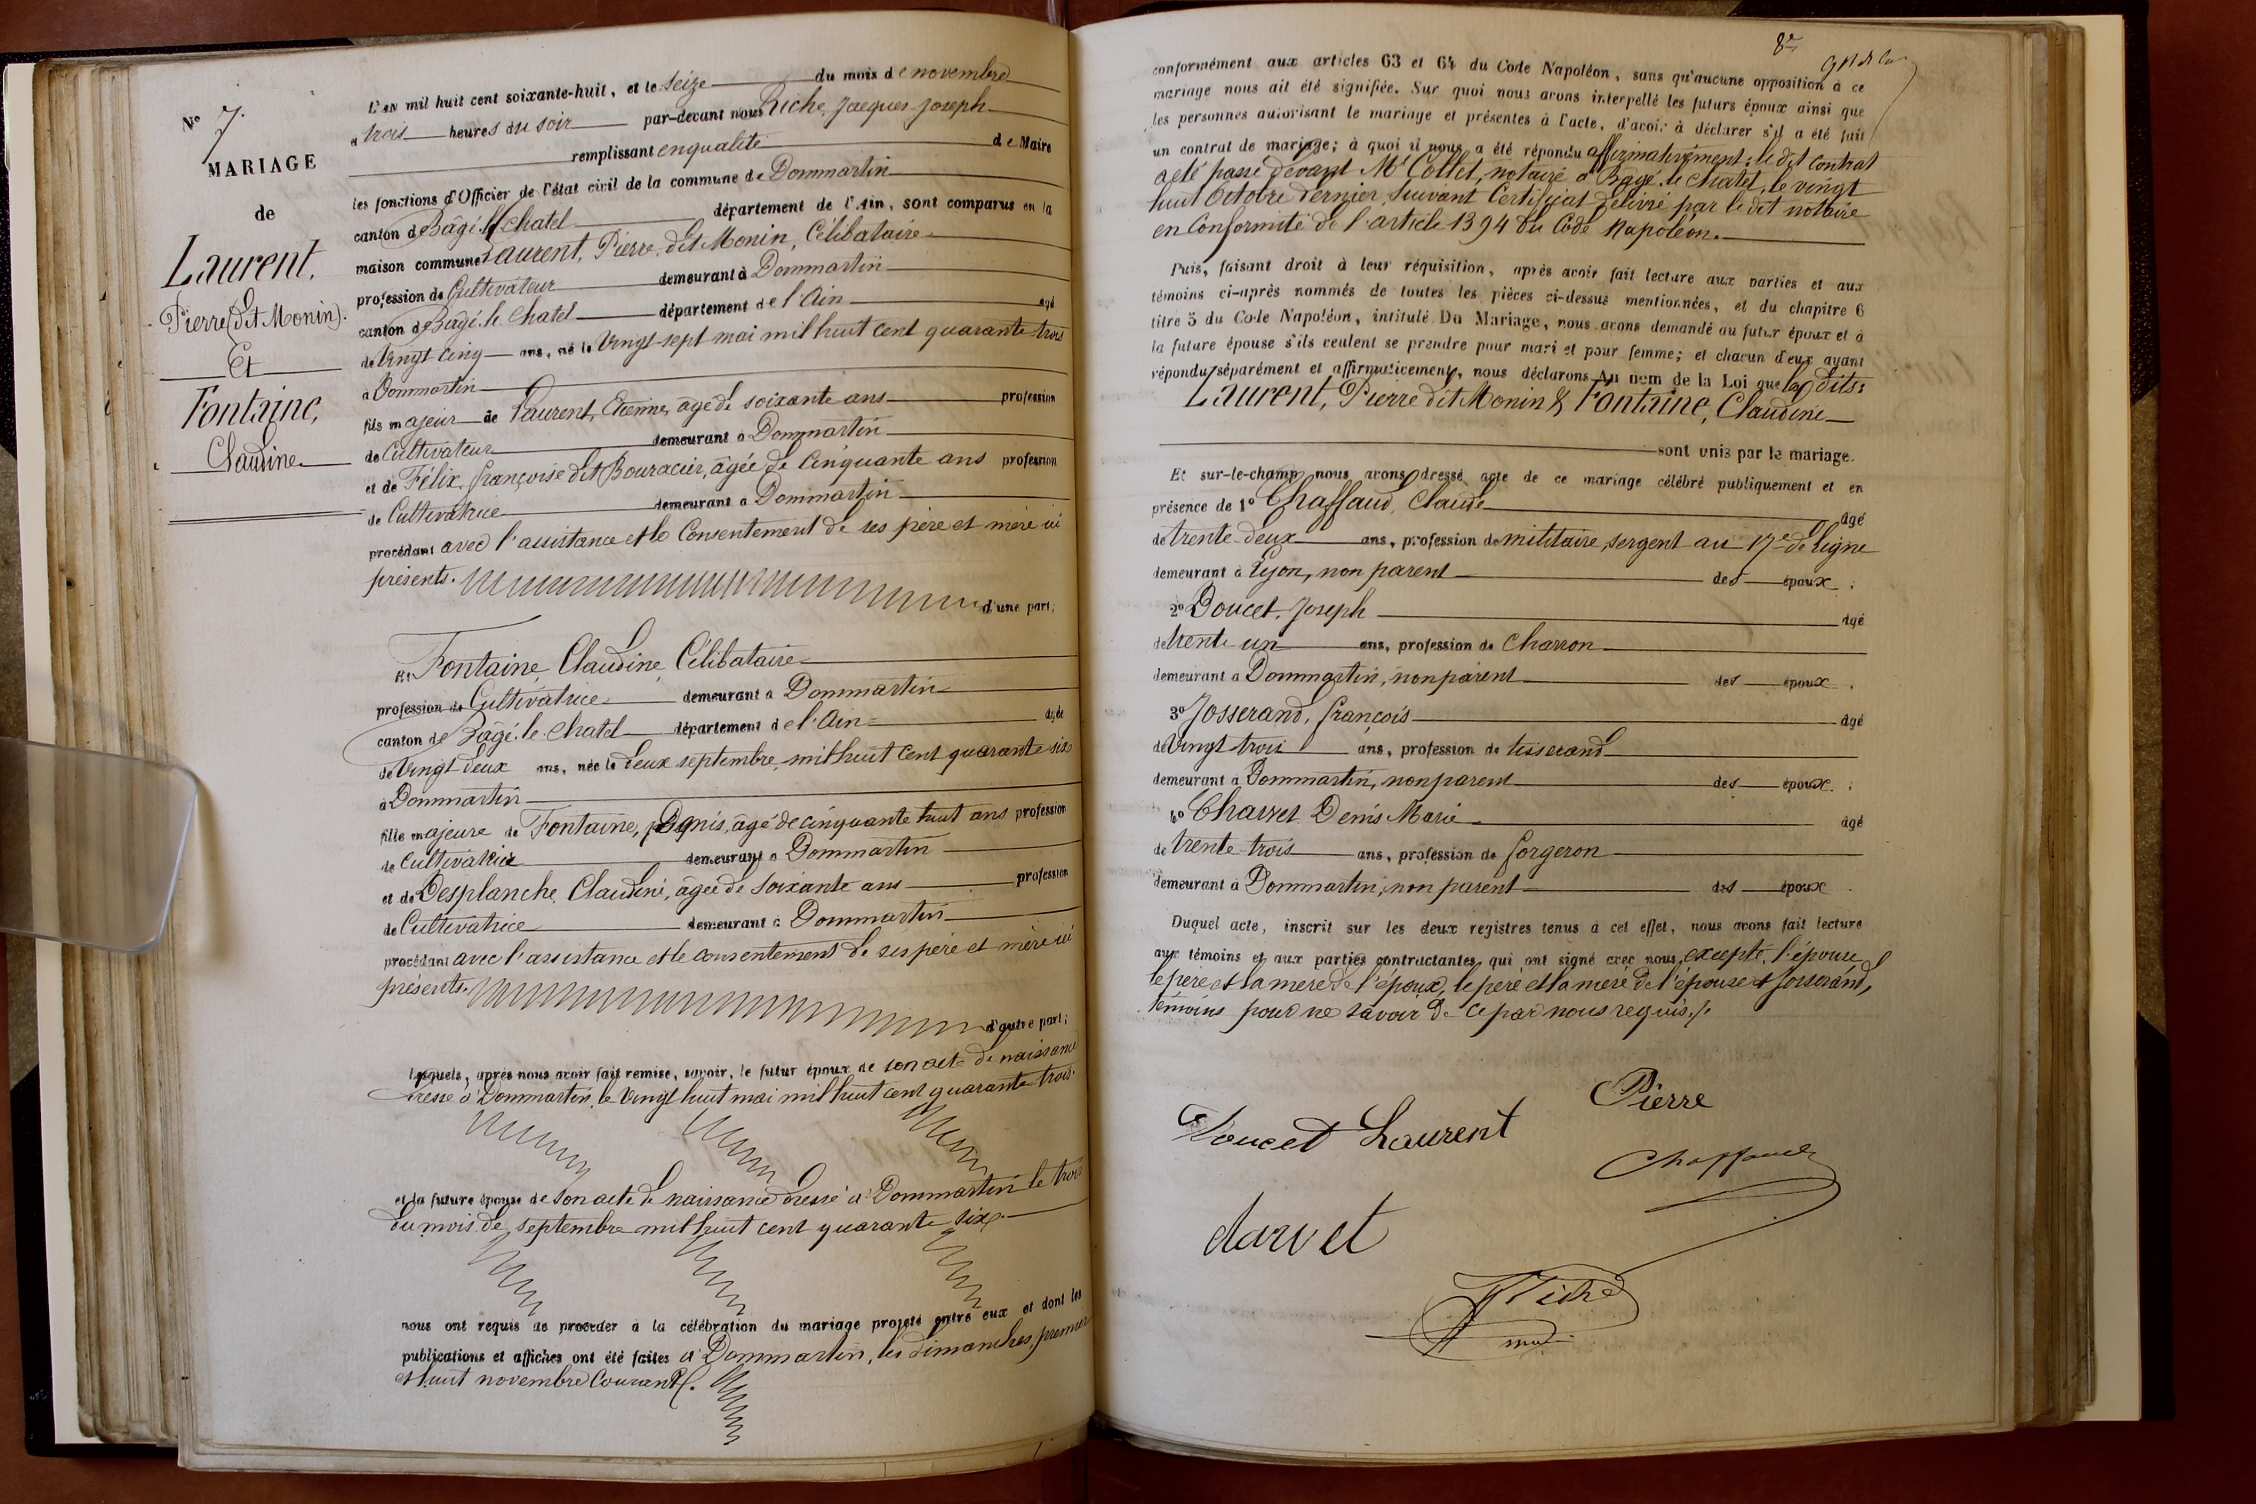 N° 7.
MARIAGE
de
Laurent,
Pierre (dit Monin).
Et
Fontaine,
Claudine
L'an mil huit cent soixante-huit, et le seize du mois de novembre
a trois heures du soir par-devant nous Riche, Jacques Joseph
remplissant en qualité de Maire
les fonctions d'Officier de l'état civil de la commune de Dommartin
canton de Bâgé le Chatel département de l'Ain, sont comparus en la
maison commune Laurent, Pierre, dit Monin, Célibataire
profession de Cultivateur demeurant à Dommartin
canton de Bâgé le Chatel département de l'Ain agé
de vingt cinq ans, né le vingt-sept mai mil huit cent quarante trois
à Dommartin
fils majeur de Laurent, Etienne, âgé de soixante ans profession
de Cultivateur demeurant à Dommartin
et de Félix, françoise dit Bouracier, âgée de Cinquante ans profession
de Cultivatrice demeurant a Dommartin
procédant avec l'assistance et le Consentement de ses père et mère ici
présents. d'une part;
Et Fontaine, Claudine, Célibataire
profession de Cultivatrice demeurant à Dommartin
canton de Bâgé le Chatel département de l'Ain agée
de Vingt deux ans, née le deux septembre mil huit cent quarante six
à Dommartin
fille majeure de Fontaine, Denis, âgé de cinquante huit ans profession
de Cultivateur demeurant a Dommartin
et de Desplanche, Claudine, âgée de Soixante ans profession
de Cultivatrice demeurant à Dommartin
procédant avec l'assistance et le consentement de ses père et mère ici
présents. d'autre part;
lesquels, après nous avoir fait remise, savoir, le futur époux de son acte de naissance
dressé à Dommartin, le vingt huit mai mil huit cent quarante trois.
et la future épouse de son acte de naissance dressé à Dommartin le trois
du mois de septembre mil huit cent quarante six.
nous ont requis de procéder à la célébration du mariage projeté entre eux et dont les
publications et affiches ont été faites à Dommartin, les dimanches, premier
et huit novembre Courant.
conformément aux articles 63 et 64 du Code Napoléon, sans qu'aucune opposition à ce
mariage nous ait été signifiée. Sur quoi nous avons interpellé les futurs époux ainsi que
les personnes autorisant le mariage et présentes à l'acte, d'avoir à déclarer s'il a été fait
un contrat de mariage; à quoi il nous a été répondu affirmativement: le dit Contrat
a été passé devant Me Collet, notaire à Bagé le Chatel, le vingt
huit Octobre dernier, Suivant Certificat délivré par le dit notaire
en Conformité de l'article 1394 du Code Napoléon.
Puis, faisant droit à leur réquisition, après avoir fait lecture aux parties et aux
témoins ci-après nommés de toutes les pièces ci-dessus mentionnées, et du chapitre 6
titre 5 du Code Napoléon, intitulé Du Mariage, nous avons demandé au futur époux et à
la future épouse s'ils veulent se prendre pour mari et pour femme; et chacun d'eux ayant
répondu séparément et affirmativement, nous déclarons Au nom de la Loi que les dits:
Laurent, Pierre dit Monin & Fontaine, Claudine
sont unis par le mariage.
Et sur-le-champ nous avons dressé acte de ce mariage célébré publiquement et en
présence de 1° Chaffaud, Claude âgé
de trente deux ans, profession de militaire, sergent au 17e de ligne
demeurant à Lyon, non parent des époux;
2° Doucet, Joseph agé
de trente un ans, profession de Charron
demeurant à Dommartin, non parent des époux.
3° Josserand, françois âgé
de vingt trois ans, profession de tisserand
demeurant à Dommartin, non parent des époux;
4° Charvet Denis Marie âgé
de trente trois ans, profession de forgeron
demeurant à Dommartin, non parent des époux.
Duquel acte, inscrit sur les deux registres tenus à cet effet, nous avons fait lecture
aux témoins et aux parties contractantes, qui ont signé avec nous, excepté, l'épouse,
le père et la mère de l'époux, le père et la mère de l'épouse & Josserand,
témoins pour ne savoir de ce par nous requis./.
Pierre
Doucet Laurent
Chaffaud
Charvet
J Riche